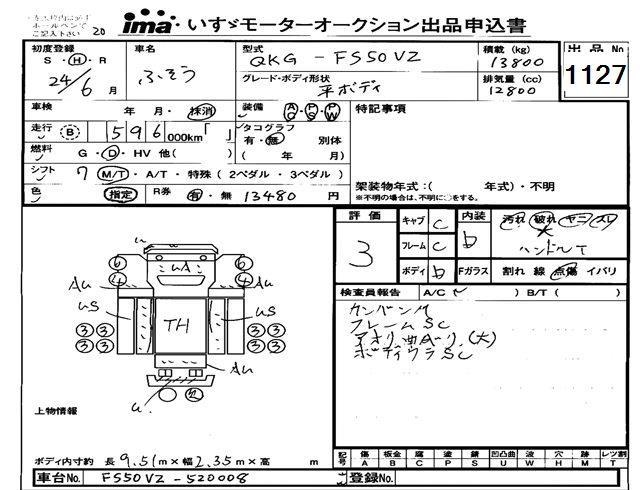 ima いすゞモーターオークション出品申込書
20
初度登録 S・H・R 24/6 月
車名 ふそう
型式 QKG - FS50VZ
積載 (kg) 13800
出品No 1127
グレード・ボディ形状 平ボディ
排気量 (cc) 12800
車検 年 月・抹消
装備 AC・PS・PW
特記事項
走行 B 596 000km「 」
タコグラフ 有・無 別体 ( 年 月)
燃料 G・D・HV 他( )
シフト 7 M/T・A/T・特殊 ( 2ペダル・3ペダル )
架装物年式:( 年式)・不明
※不明の場合は、不明に○をする。
色 指定 R券 有・無 13480 円
評価 3
キャブ C
フレーム C
ボディ b
内装 b 汚れ 破れ ヤニ スレ
ハンドルT
Fガラス 割れ 線 点傷 イバリ
検査員報告 A/C ( ) B/T ( )
カンバンM
フレームSC
アオリ曲Aハリ(大)
ボディウラSC
u
uA
6 6
4 4
Au Au
us us
TH
3 3 3 3
3 3 3 3
Au
u
上物情報
ボディ内寸約 長 9.51 m×幅 2.35 m×高 m
記号 傷 A 板金 B 腐 C 塗 P 塗 S 錆 U 凹凸曲 W 波 H 穴 M 跡 T レツ割
車台No. FS50VZ-520008
登録No.